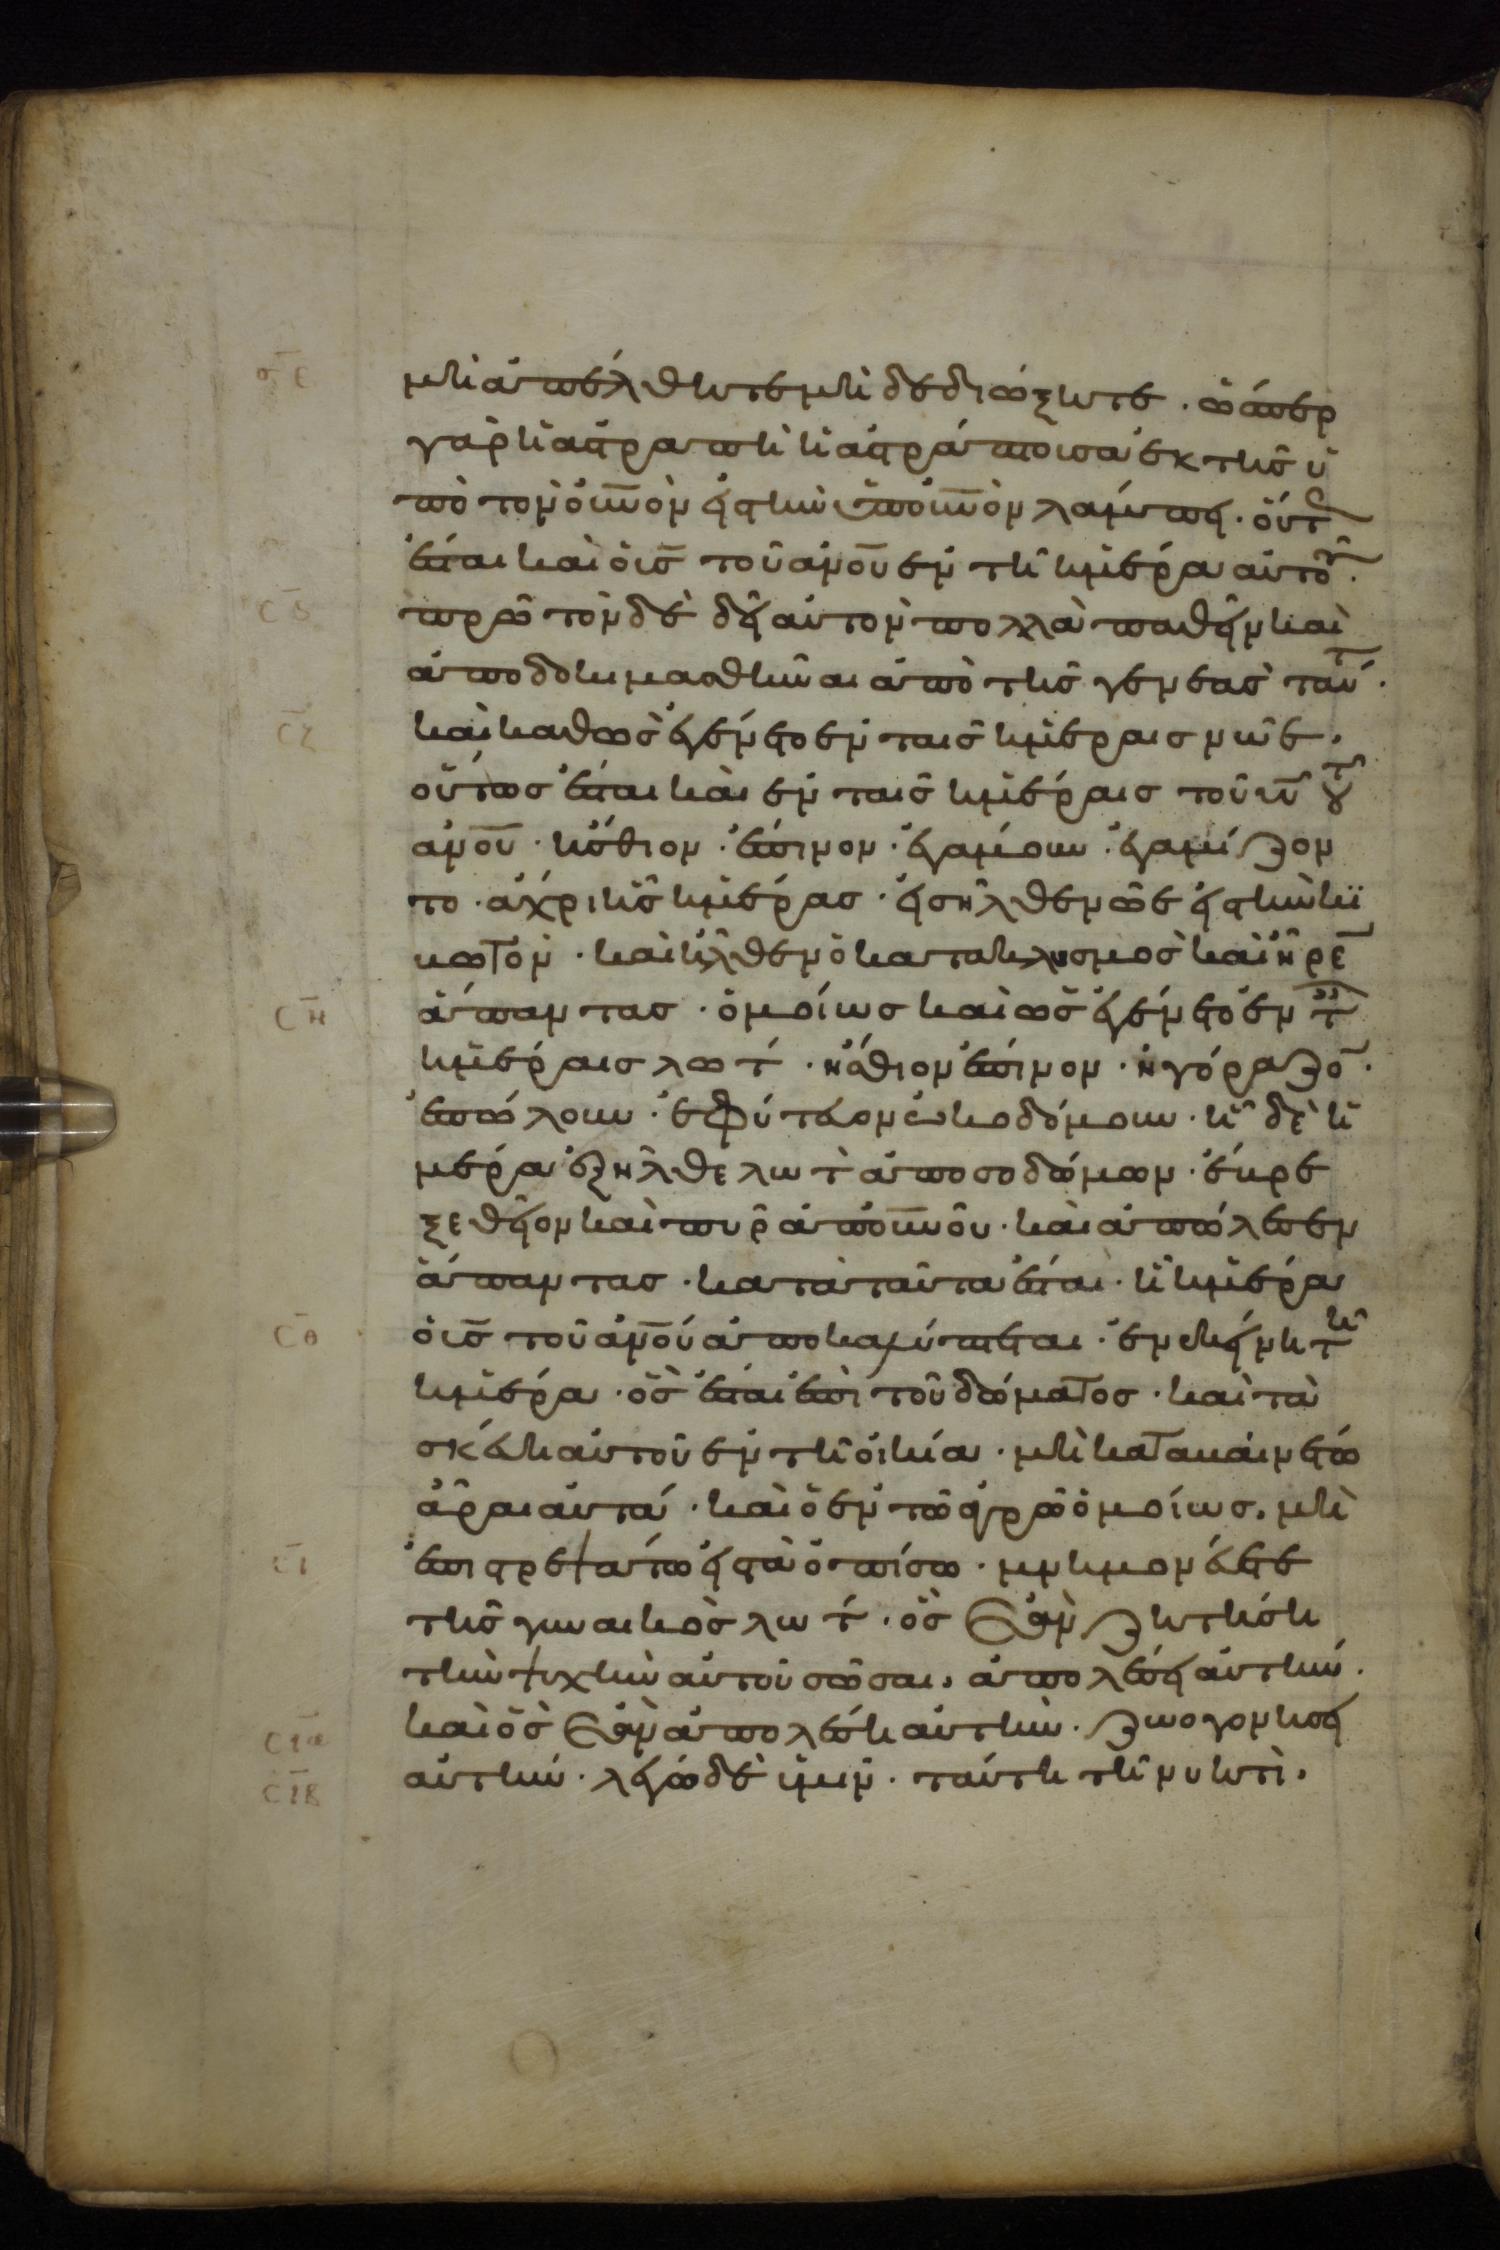 σε μὴ ἀπέλθητε μὴ δὲ διώξητε · ὥσπερ
γὰρ ἡ ἀστραπὴ ἡ ἀστράπτουσα ἐκ τῆς ὑ
πὸ τὸν οὐνὸν εἰς τὴν ὑπ οὐνὸν λάμπει · οὕτ
ἔσται καὶ ὁ υἱς τοῦ ἀνου ἐν τῆ ἡμέρα αὐτοῦ ·
ς πρῶτον δὲ δεῖ αὐτὸν πολλὰ παθεῖν καὶ
ἀποδοκιμασθῆναι ἀπὸ τῆς γενεᾶς ταύτ ·
ςζ καὶ καθὼς ἐγένετο ἐν ταῖς ἡμέραις νῶε ·
οὕτως ἔσται καὶ ἐν ταῖς ἡμέραις τοῦ υυ τοῦ
ἀνου · ἤσθιον · ἔπινον · ἐγάμουν · ἐγαμίζον
το · ἄχρι ἧς ἡμέρας · εἰσῆλθε νῶε εἰς τὴν κι
κωτόν · καὶ ἦλθεν ὁ κατακλυσμὸς καὶ ἦρε
ςη ἅπαντας · ὁμοίως καὶ ὡς ἐγένετο ἐν τ
ἡμέραις λώτ · ἤσθιον ἔπινον · ἠγόραζο ·
ἐπώλουν · ἐφύτευον ὠκοδόμουν · ἧ δὲ ἡ
μέρα ἐξῆλθε λὼτ ἀπο σοδόμων · ἔβρε
ξε θεῖον καὶ πῦρ ἀπ οὐνοῦ · καὶ ἀπώλεσεν
ἅπαντας · κατὰ ταῦτα ἔσται · ἧ ἡμέρα
ςθ ὁ υἱς τοῦ ἀνου ἀποκαλύπτεται · ἐν ἐκείνη τῆ
ἡμέρα · ὃς ἔσται ἐπὶ τοῦ δώματος · καὶ τὰ
σκεύη αὐτοῦ ἐν τῆ οἰκία · μὴ καταβάτω
ἆραι αὐτά · καὶ ὁ ἐν τῶ ἀγρῶ ὁμοίως · μὴ
σι ἐπιστρεψάτω εἰς τὰ ὀπίσω · μνημονεύετε
τῆς γυναικὸς λώτ · ὃς ἐὰν ζητήση
τὴν ψυχὴν αὐτοῦ σῶσαι, ἀπολέσει αὐτήν ·
ςια καὶ ὃς ἐὰν ἀπολέση αὐτὴν · ζωογονήσει
ςιβ αὐτήν · λέγω δὲ ὑμῖν · ταύτη τῆ νυκτὶ ·